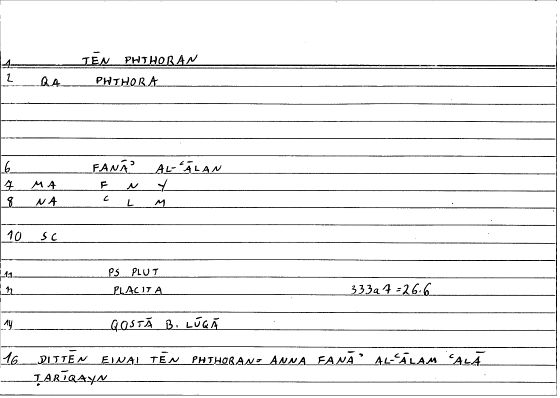 1 TĒN PHTHORAN
2 QA PHTHORA
6 FANĀʾ AL-ʿĀLAN
7 MA F N Y
8 NA ʿ L M
10 SC
11 PS PLUT
12 PLACITA 333a7=26.6
14 QOSṬĀ B. LŪQĀ
16 DITTĒN EINAI TĒN PHTHORAN= ANNA FANĀʾ AL-ʿĀLAM ʿALĀ
ṬARĪQAYN